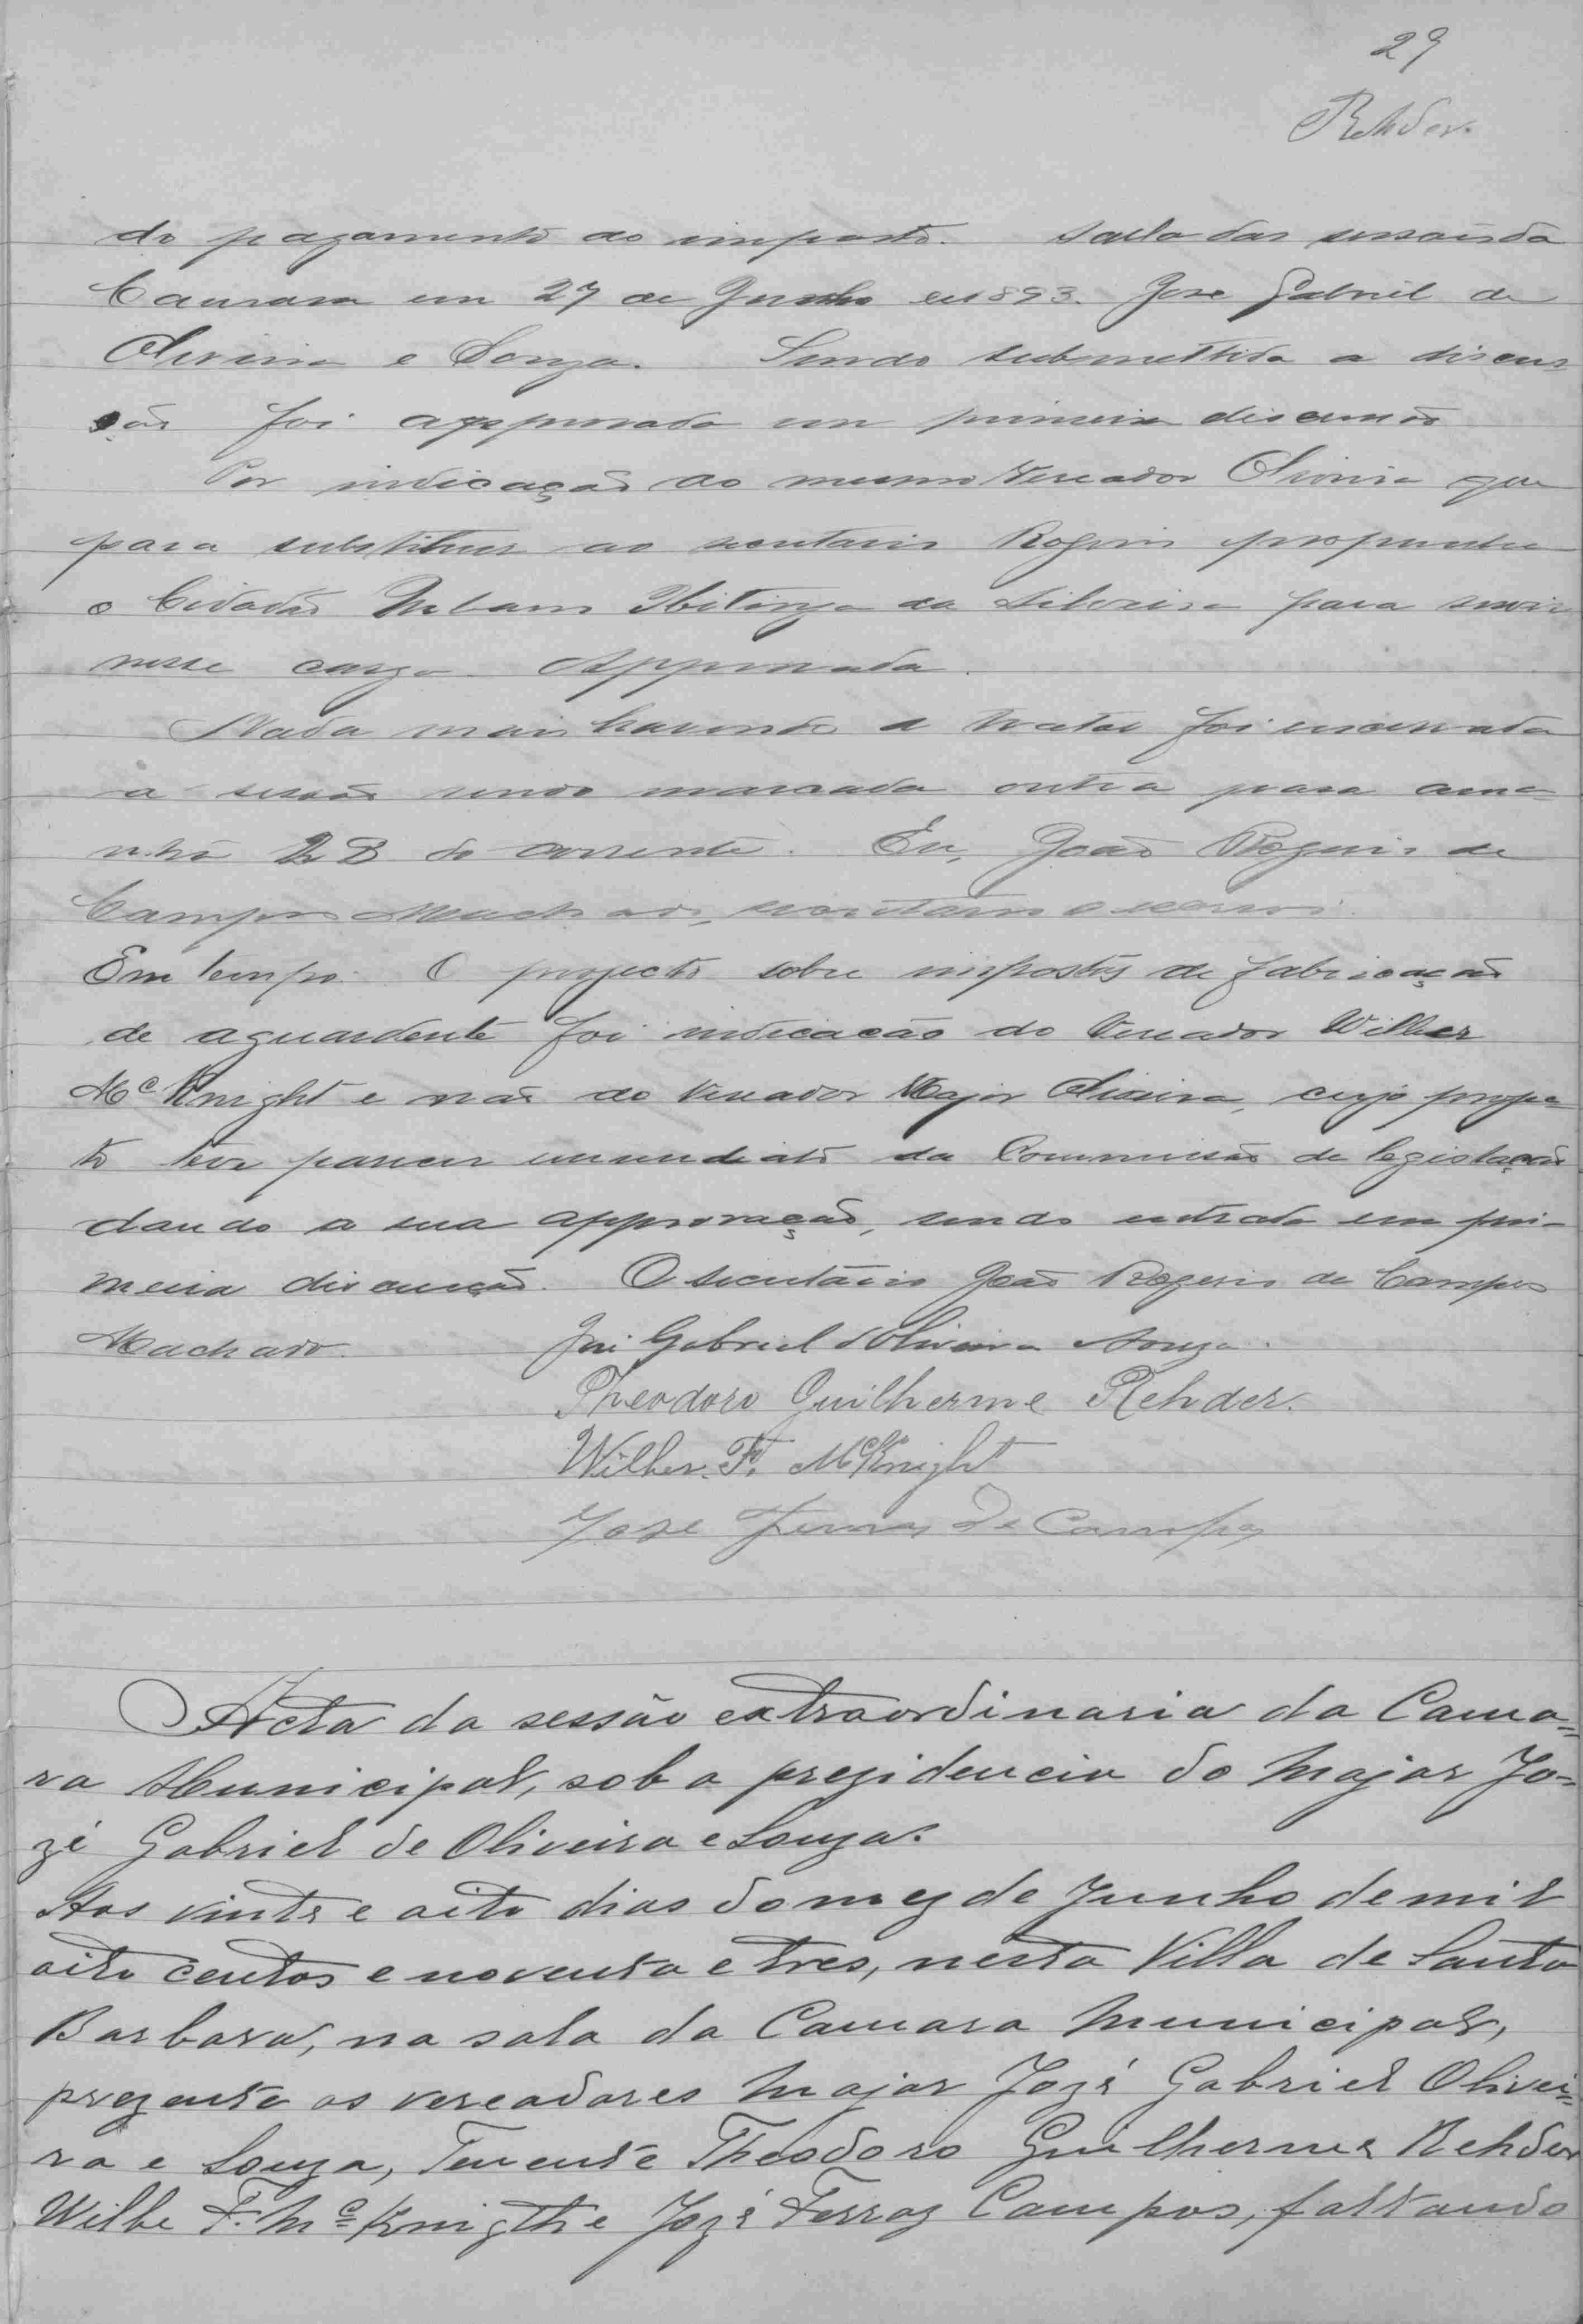 29
Rehder.
do pagamento do imposto. Salla das sessões da
Camara em 27 de Junho de 1893. Jose Gabriel de
Oliveira e Souza. Sendo submettida a discus
são foi approvada em primeira discussão
Por indicação do mesmo Vereador Oliveira que
para substituir ao secretario Rogerio propunha
o Cidadão Urbano Ibitinga da Silveira para servir
nesse cargo. Approvada.
Nada mais havendo a tratar foi encerrada
a sessão sendo marcada outra para ama-
nhã 28 do corrente. Eu, João Rogerio de
Campos Machado, secretario o escrevi.
Em tempo. O projecto sobre impostos de fabricação
de aguardente foi indicação do Vereador Wilber
McKnight e não do Vereador Major Oliveira, cujo projec-
to teve parecer immediato da Commissão de legislação
dando a sua approvação, sendo entrado em pri-
meira discussão. O secretário João Rogerio de Campos
Machado. José Gabriel d'Oliveira Souza.
Theodoro Guilherme Rehder.
Wilber. F. McKnight
Jose Ferraz de Campos
Acta da sessão extraordinaria da Cama=
ra Municipal, sob a prezidencia do Major Jo=
zé Gabriel de Oliveira e Souza.
Aos vinte e oito dias do mez de Junho de mil
oito centos e noventa e tres, nesta Villa de Santa
Barbara, na sala da Camara Municipal,
prezente os vereadores Major Jozé Gabriel Olivei=
ra e Souza, Tenente Theodoro Guilherme Rehder
Wilbe F. Mc Knigth e Jozé Ferraz Campos, faltando